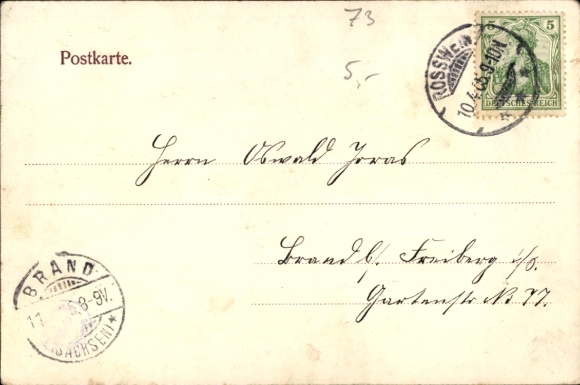 73
Postkarte.
5,-
5 5
DEUTSCHES REICH
ROSSWEIN
10.4.05.9-10N
Herrn Oswald Joras
Brand b/. Freiberg i/S.
Gartenstr No 77.
BRAND
11 5.8-9V.
(SACHSEN)